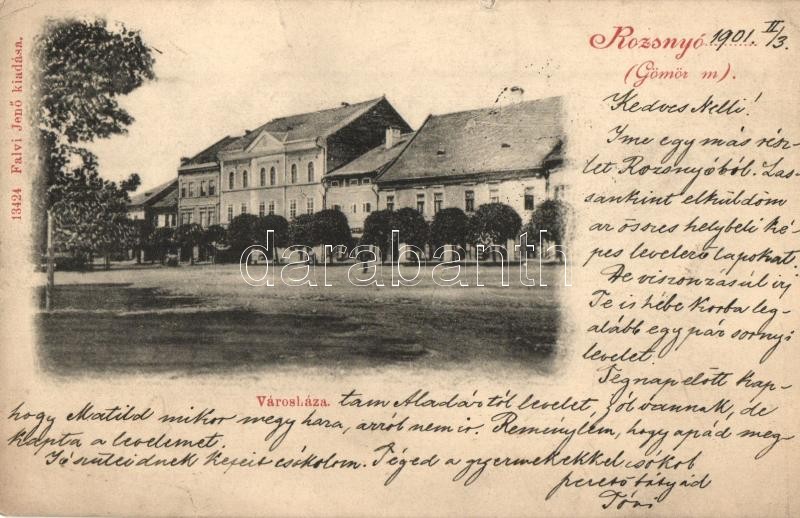 Rozsnyó 1901. II/3.
(Gömör m).
13424 Falvi Jenő kiadása.
Kedves Nelli!
Ime egy más rész-
let Rozsnyóból. Las-
sankint elküldöm
az összes helybeli ké-
pes levelező lapokat.
De viszonzásul irj
Te is hébe korba leg-
alább egy pár sornyi
levelet.
Tegnap előtt kap-
darabanth
Városháza.
tam Aladártól levelet, jól vannak, de
hogy Matild mikor megy haza, arról nem ir. Remenylem, hogy apád meg
kapta a levelemet.
Jó szüleidnek kezeit csókolom. Téged a gyermekekkel csókol
szerető bátyád